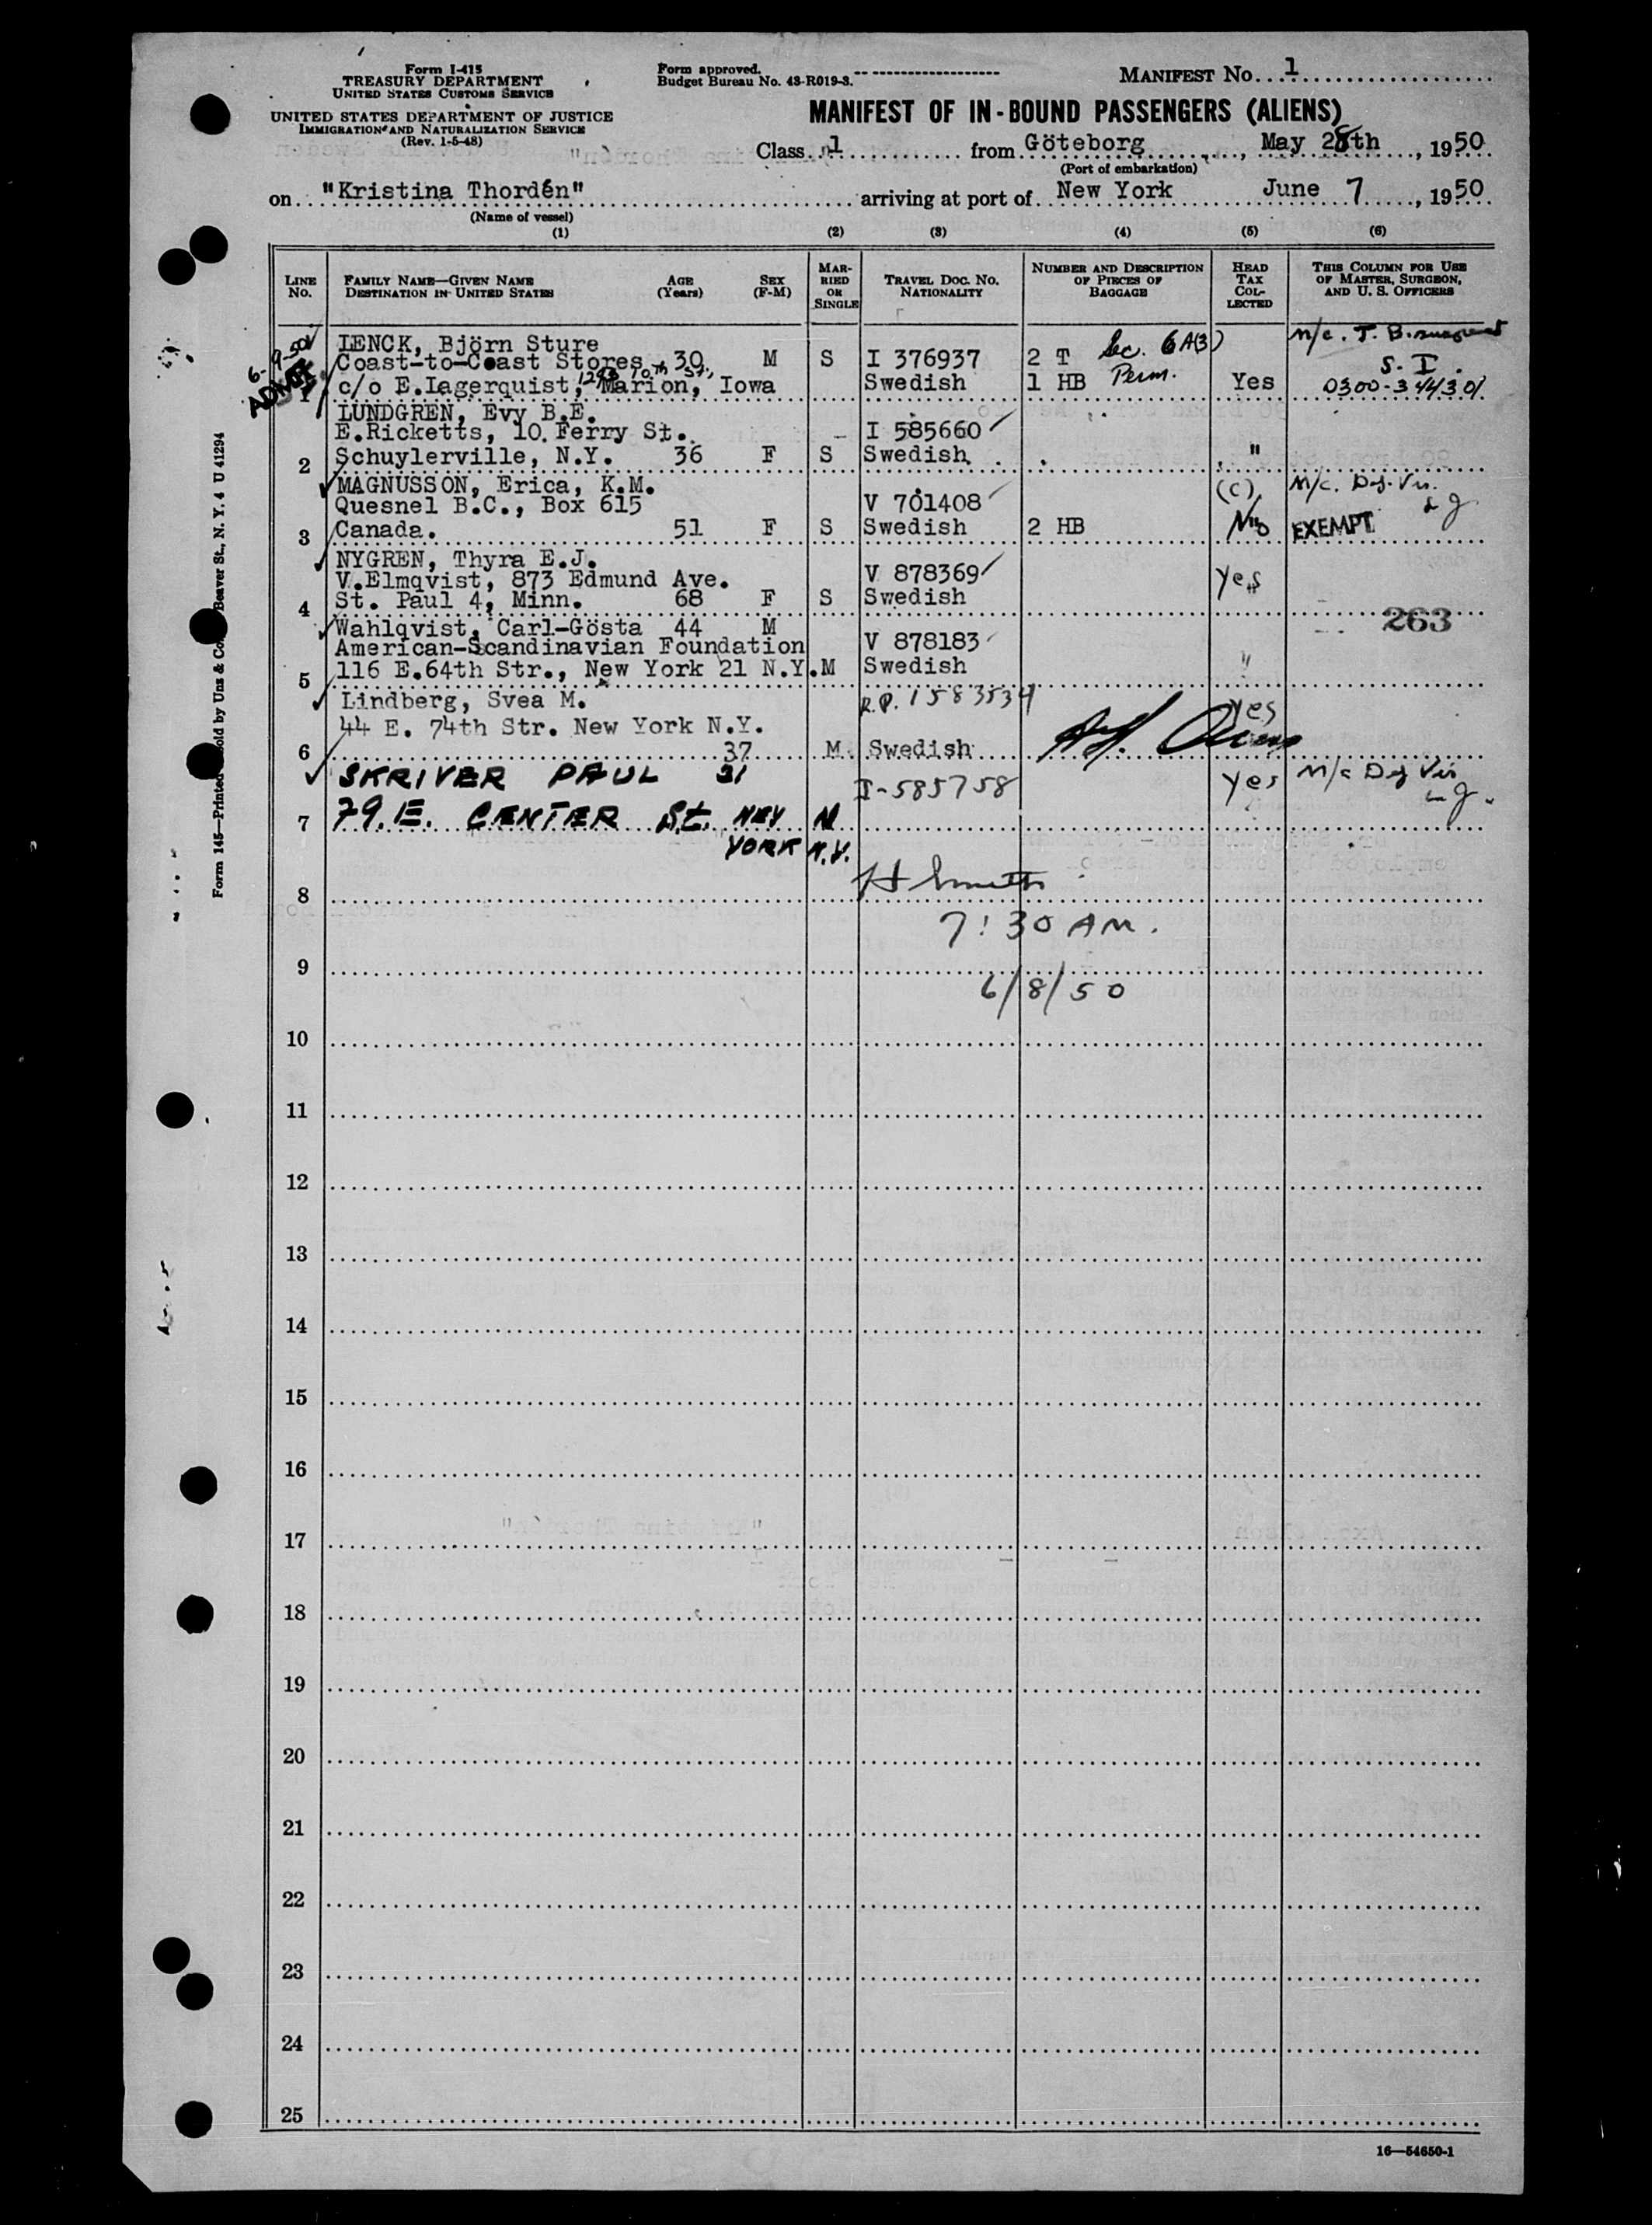 Form I-415
TREASURY DEPARTMENT
UNITED STATES CUSTOMS SERVICE
UNITED STATES DEPARTMENT OF JUSTICE
IMMIGRATION AND NATURALIZATION SERVICE
(Rev. 1-5-48)
Form approved.
Budget Bureau No. 43-R019-3.
MANIFEST No. 1
MANIFEST OF IN-BOUND PASSENGERS (ALIENS)
Class 1 from Göteborg, May 28th, 1950
(Port of embarkation)
on "Kristina Thordén" arriving at port of New York June 7, 1950
(Name of vessel)
(1) (2) (3) (4) (5) (6)
LINE No.
FAMILY NAME—GIVEN NAME
DESTINATION IN UNITED STATES
AGE (Years)
SEX (F-M)
MARRIED OR SINGLE
TRAVEL DOC. No.
NATIONALITY
NUMBER AND DESCRIPTION OF PIECES OF BAGGAGE
HEAD TAX COLLECTED
THIS COLUMN FOR USE OF MASTER, SURGEON, AND U. S. OFFICERS
6-9-50
ADMIT
IENCK, Björn Sture n/c. T. B.
Coast-to-Coast Stores 30 M S I 376937 2 T Sec. 6A(3) S. I.
1 c/o E.Iagerquist, 1293 10th St., Marion, Iowa Swedish 1 HB Perm. Yes 0300-344301
LUNDGREN, Evy B.E.
E.Ricketts, 10 Ferry St. I 585660
2 Schuylerville, N.Y. 36 F S Swedish "
MAGNUSSON, Erica, K.M. (C) N/c. Dy. Vis.
Quesnel B.C., Box 615 V 701408
3 Canada. 51 F S Swedish 2 HB No EXEMPT
NYGREN, Thyra E.J.
V.Elmqvist, 873 Edmund Ave. V 878369 yes
4 St. Paul 4, Minn. 68 F S Swedish "
263
Wahlqvist, Carl-Gösta 44 M
American-Scandinavian Foundation V 878183
5 116 E.64th Str., New York 21 N.Y. M Swedish "
Lindberg, Svea M. R.P. 1583534 yes
44 E. 74th Str. New York N.Y.
6 37 M Swedish
SKRIVER PAUL 31 I-585758 yes N/c Dy Vis
7 79. E. CENTER St. NEY
YORK N.Y.
8 H Smith
7:30 AM.
9
6/8/50
10
11
12
13
14
15
16
17
18
19
20
21
22
23
24
25
16—54650-1
Form 145—Printed Sold by Unz & Co. Beaver St., N. Y. 4 U 41294